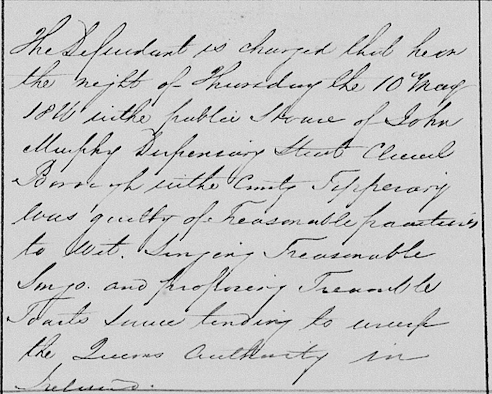 The Defendant is charged that he on
the night of Thursday the 10th May
in the public House of John
Murphy Dispensary Street Clonmel
Borough in the County Tipperary
was guilty of Treasonable practices
to Wit. Singing Treasonable
Songs. and proposing Treasonable
Toasts tending to usurp
the Queens Authority in
Ireland.